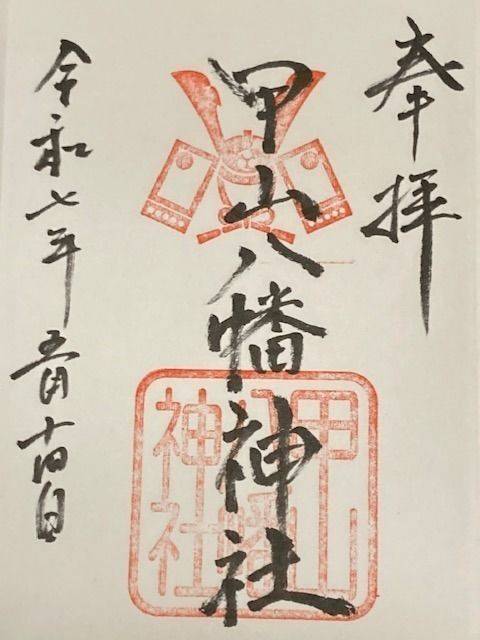 奉拝
甲山八幡神社
甲山
八幡
神社
令和七年
五月